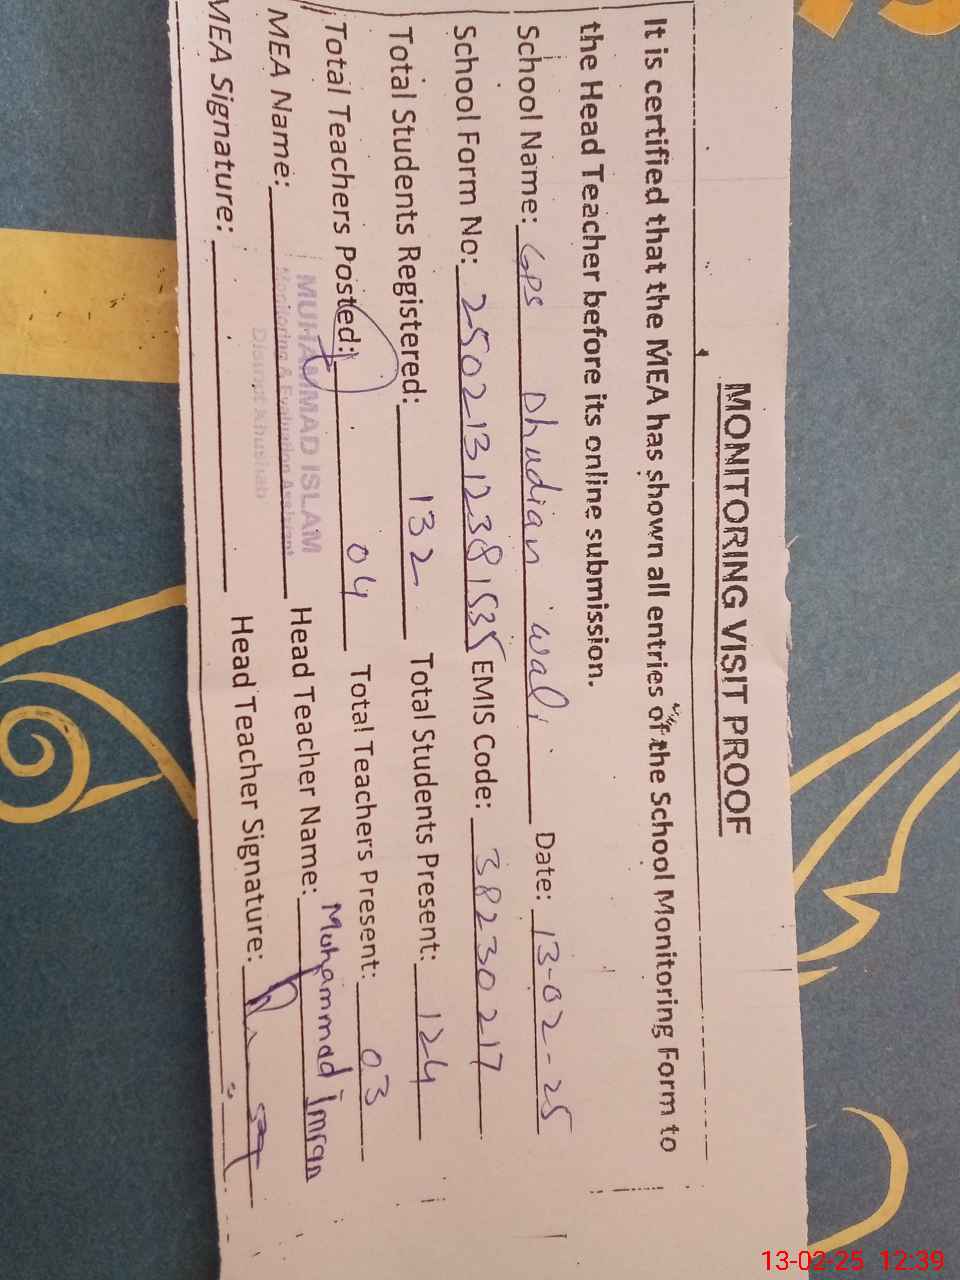 MONITORING VISIT PROOF
It is certified that the MEA has shown all entries of the School Monitoring Form to
the Head Teacher before its online submission.
School Name: GPS Dhudian wali Date: 13-02-25
School Form No: 25021312381535 EMIS Code: 38230217
Total Students Registered: 132 Total Students Present: 124
Total Teachers Posted: 04 Total Teachers Present: 03
MEA Name: MUHAMMAD ISLAM Head Teacher Name: Muhammad Imran
Monitoring & Evaluation Assistant
District Khushab
MEA Signature: Head Teacher Signature:
13-02-25 12:39